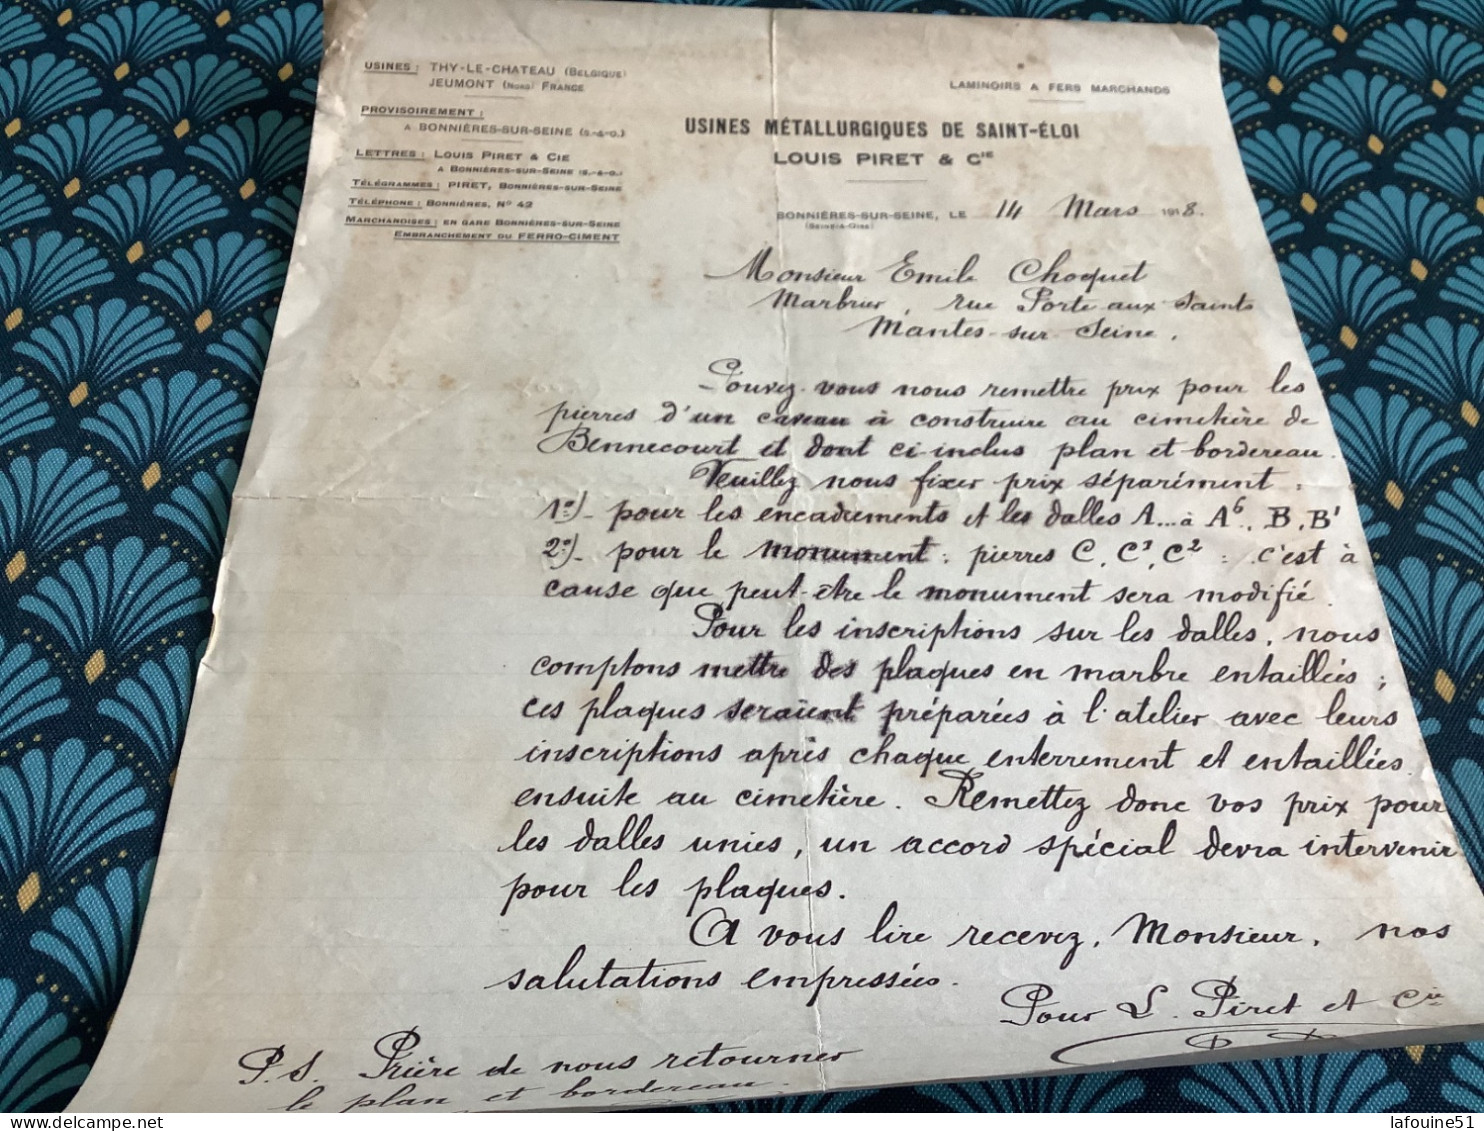 USINES : THY-LE-CHATEAU (BELGIQUE)
JEUMONT (NORD) FRANCE
PROVISOIREMENT :
A BONNIÈRES-SUR-SEINE (S.-&-O.)
LETTRES : LOUIS PIRET & CIE
A BONNIÈRES-SUR-SEINE (S.-&-O.)
TÉLÉGRAMMES : PIRET, BONNIÈRES-SUR-SEINE
TÉLÉPHONE : BONNIÈRES, N° 42
MARCHANDISES : EN GARE BONNIÈRES-SUR-SEINE
EMBRANCHEMENT DU FERRO-CIMENT
LAMINOIRS A FERS MARCHANDS
USINES MÉTALLURGIQUES DE SAINT-ÉLOI
LOUIS PIRET & CIE
BONNIÈRES-SUR-SEINE, LE 14 Mars 1918.
(SEINE-&-OISE)
Monsieur Emile Choquet
Marbrier, rue Porte-aux-Saints
Mantes-sur-Seine.
Pouvez-vous nous remettre prix pour les
pierres d'un caveau à construire au cimetière de
Bennecourt et dont ci-inclus plan et bordereau.
Veuillez nous fixer prix séparément :
1°)- pour les encadrements et les dalles A... à A6, B, B1
2°)- pour le monument : pierres C, C1, C2 : c'est à
cause que peut-être le monument sera modifié.
Pour les inscriptions sur les dalles, nous
comptons mettre des plaques en marbre entaillées ;
ces plaques seraient préparées à l'atelier avec leurs
inscriptions après chaque enterrement et entaillées
ensuite au cimetière. Remettez donc vos prix pour
les dalles unies, un accord spécial devra intervenir
pour les plaques.
A vous lire recevez, Monsieur, nos
salutations empressées.
Pour L. Piret et Cie
P.S. Prière de nous retourner
le plan et bordereau.
lafouine51